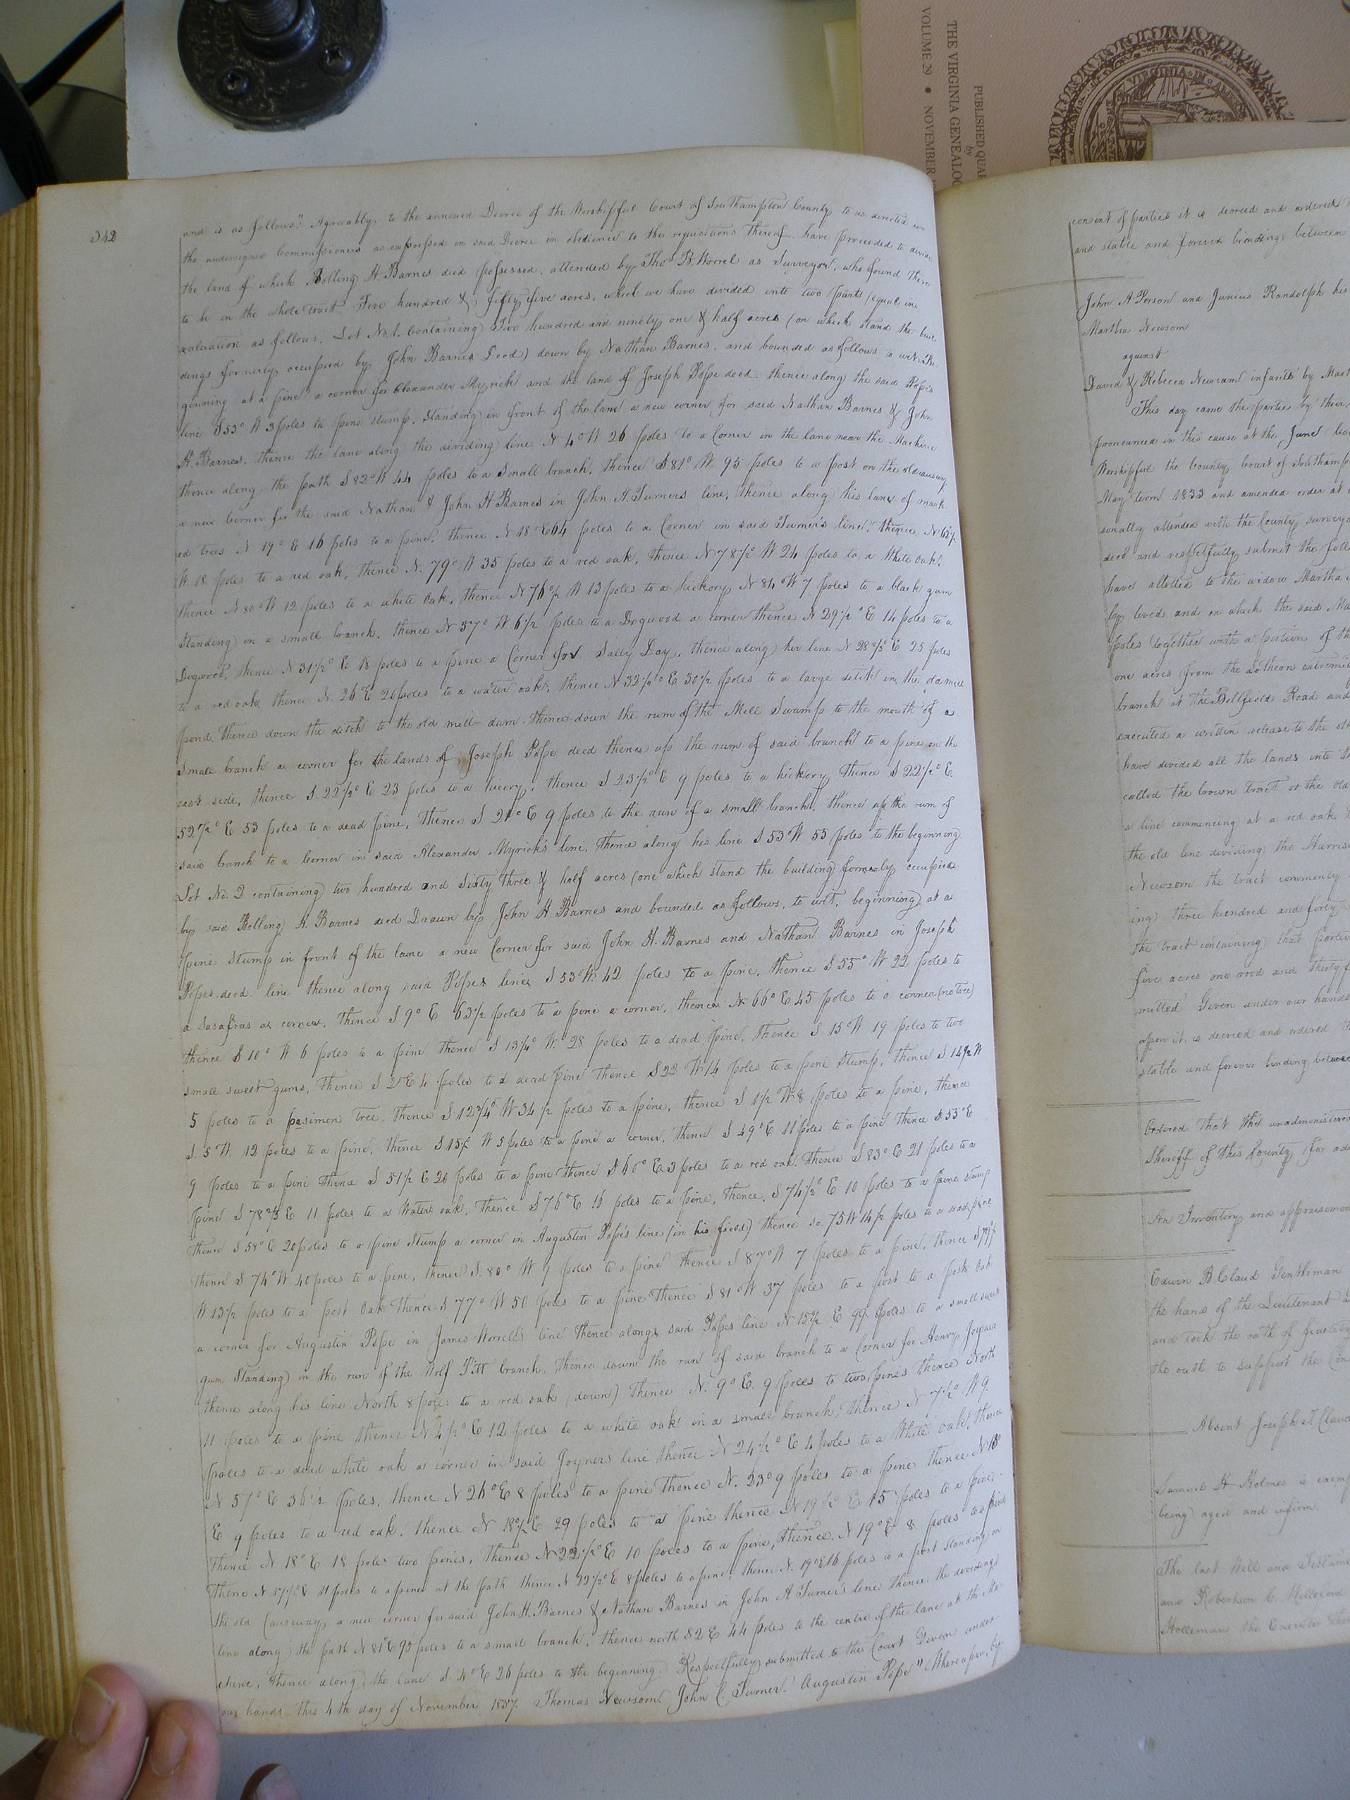 PUBLISHED QUA
by
THE VIRGINIA GENEALO
VOLUME 29 • NOVEMBER
VIRGINIA
342
and is as follows" Agreeably to the annexed Decree of the Worshipful Court of Southampton County to us directed we
the undersigned Commissioners as expressed in said Decree in obedience to the requisitions thereof have proceeded to divide
the land of which Bolling H Barnes died possessed, attended by Thos B. Worrel as Surveyor, who found them
to be in the whole tract Five hundred & fifty five acres, which we have divided into two parts equal in
valuation as follows. Lot No 1. Containing Two hundred and ninety one & half acres (on which stand the buil
dings formerly occupied by John Barnes Decd) down by Nathan Barnes, and bounded as follows to wit, Be
ginning at a pine a corner for Alexander Myrick and the land of Joseph Pope decd thence along the said Popes
line S 53° W 3 poles to pine stump, standing in front of the lane a new corner for said Nathan Barnes & John
H. Barnes, thence the lane along the dividing line N 4° W 26 poles to a Corner in the lane near the Machine
thence along the path S 82° W 44 poles to a small branch, thence S 81° W. 95 poles to a post on the old causway
a new corner for the said Nathan & John H Barnes in John A Turners line, thence along his line of mark
ed trees N 19° E 16 poles to a pine, thence N 18° E 64 poles to a Corner in said Turner's line, thence N
W 18 poles to a red oak, thence N. 79° W 35 poles to a red oak, thence N 78½ W 24 poles to a White oak,
thence N 80° W 12 poles to a white oak, thence N 76½ W 13 poles to a hickory N 84° W 7 poles to a black gum
standing on a small branch, thence N 57° W 6½ poles to a Dogwood a corner thence N 29½° E 14 poles to a
Dogwood, thence N 31½° E 18 poles to a pine a Corner for Sally Day, thence along her line N 28 E 25 poles
to a red oak thence N. 26 E 26 poles to a water oak, thence N 32½° E 30½ poles to a large ditch in the
pond, thence down the ditch to the old mill dam thence down the run of the Mill Swamp to the mouth of a
small branch a corner for the lands of Joseph Pope decd thence up the run of said branch to a pine on the
east side, thence S 22½° E 23 poles to a thence S 23½° E 9 poles to a hickory thence S 22½° E
52½° E 53 poles to a dead pine, thence S 20° E 9 poles to the run of a small branch, thence up the run of
said branch to a Corner in said Alexander Myrick's line, thence along his line S 53 W 55 poles to the beginning
Lot No. 2 containing two hundred and sixty three & half acres (one which stand the building formerly occupied
by said Bolling H. Barnes decd Drawn by John H Barnes and bounded as follows, to wit, beginning at a
pine stump in front of the lane a new Corner for said John H. Barnes and Nathan Barnes in Joseph
Popes decd line thence along said Popes line S 53° W. 42 poles to a pine, thence S 55° W 22 poles to
a Sasafras a corner, thence S 9° E 63½ poles to a pine a corner, thence N 66° E 45 poles to a corner (no tree)
thence S 10° W 6 poles to a pine thence S 13¼° W. 28 poles to a dead pine, thence S 15° W 19 poles to two
small sweet gums, thence S 2° E 4 poles to a dead pine thence S 22 W 14 poles to a pine stump, thence S 14½ W
5 poles to a pesimon tree, thence S 12¾° W 34½ poles to a pine, thence S 1½ W 8 poles to a pine, thence
S. 5° W. 12 poles to a pine, thence S 15½ W 5 poles to a pine a corner, thence S 49° E 11 poles to a pine thence S 53° E
9 poles to a pine thence S 51½ E 20 poles to a pine thence S 60° E 3 poles to a red oak thence S 83° E 21 poles to a
pine S 78 E 11 poles to a Water oak, thence S 76° E 16 poles to a pine, thence, S 74½° E 10 poles to a pine stump
thence S 58° E 20 poles to a pine stump a corner in Augustin Pope's line (in his field) thence so. 75 W 14½ poles to a dead pine
thence S 74° W 40 poles to a pine, thence S. 80° W 9 poles to a pine thence S 87° W 7 poles to a pine, thence S
W 13½ poles to a post oak thence S 77° W 50 poles to a pine thence S 81° W 37 poles to a post to a post oak
a corner for Augustin Pope in James Worrell's line thence along said Popes line N 15½ E 99 poles to a small sweet
gum standing in the run of the Wolf Pitt branch, thence down the run of said branch to a Corner for Henry Joyner
thence along his line North 8 poles to a red oak (down) thence N. 9° E. 9 poles to two pines thence North
11 poles to a pine thence N 4½° E 12 poles to a white oak in a small branch, thence N 7½° W 9
poles to a dead white oak a corner in said Joyners line thence N 24½° E 4 poles to a White oak, thence
N 57° E 36½ poles, thence N 26° E 8 poles to a pine thence N. 23° 9 poles to a pine thence N 18°
E 9 poles to a red oak, thence N 18½ E 29 poles to a pine thence N 19½° E 15 poles to a pine,
thence N 18° E 18 poles two pines, thence N 22½° E 10 poles to a pine, thence, N 19° E 8 poles to a pine
thence N E 11 poles to a pine at the path thence N 22½° E 8 poles to a pine, thence N. 19° E 16 poles to a post standing on
the old Causeway, a new corner for said John H. Barnes & Nathan Barnes in John A Turner's line thence the dividing
line along the path N 81° E 95 poles to a small branch, thence north 82 E 44 poles to the centre of the lane at the Ma-
chine, thence along the lane S 4° E 26 poles to the beginning. Respectfully submitted to the Court Given under
our hands this 4th day of November 1837. Thomas Newsom, John C. Turner, Augustin Pope" Whereupon, by
consent of parties it is decreed and ordered
and stable and forever binding between
John A Person and Junius Randolph his
Martha Newsom
against
David & Rebecca Newsom infants by Mart
This day came the parties by their
pronounced in this cause at the June
Worshipful the County Court of Southamp
May term 1833 and amended order at
sonally attended with the County surveyo
decd and respectfully submit the foll
have allotted to the widow Martha
by lived and on which the said Ma
poles together with a portion of th
one acres (from the extremit
branch at the Bellfield Road and
executed a written release to the
have divided all the lands into
called the brown tract or the old
a line commencing at a red oak
the old line dividing the Harris
Newsom the tract commonly
ing three hundred and forty
the tract containing that portio
five acres one rood and thirty
mitted Given under our hands
upon it is decreed and ordered th
stable and forever binding between
Ordered that the unadministered
Sheriff of this County for adm
An Inventory and appraisement
Edwin B. Claud Gentleman
the hand of the Lieutenant
and took the oath of
the oath to support the Con
Absent Joseph T Claud
Samuel H Holmes is exemp
being aged and infirm
The last Will and Testame
and Robertson C.
Holleman the Executor